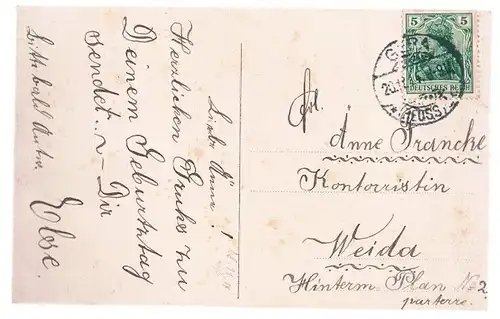 Liebe Änne!
Herzlichen Gruß zu
Deinem Geburtstag
sendet.. ~ Dir
Else.
Bitte bald Antw.
5 5
DEUTSCHES REICH
GERA
(REUSS)
Frl.
Anne Francke
Kontorristin
Weida
Hinterm Plan No 2
parterre.